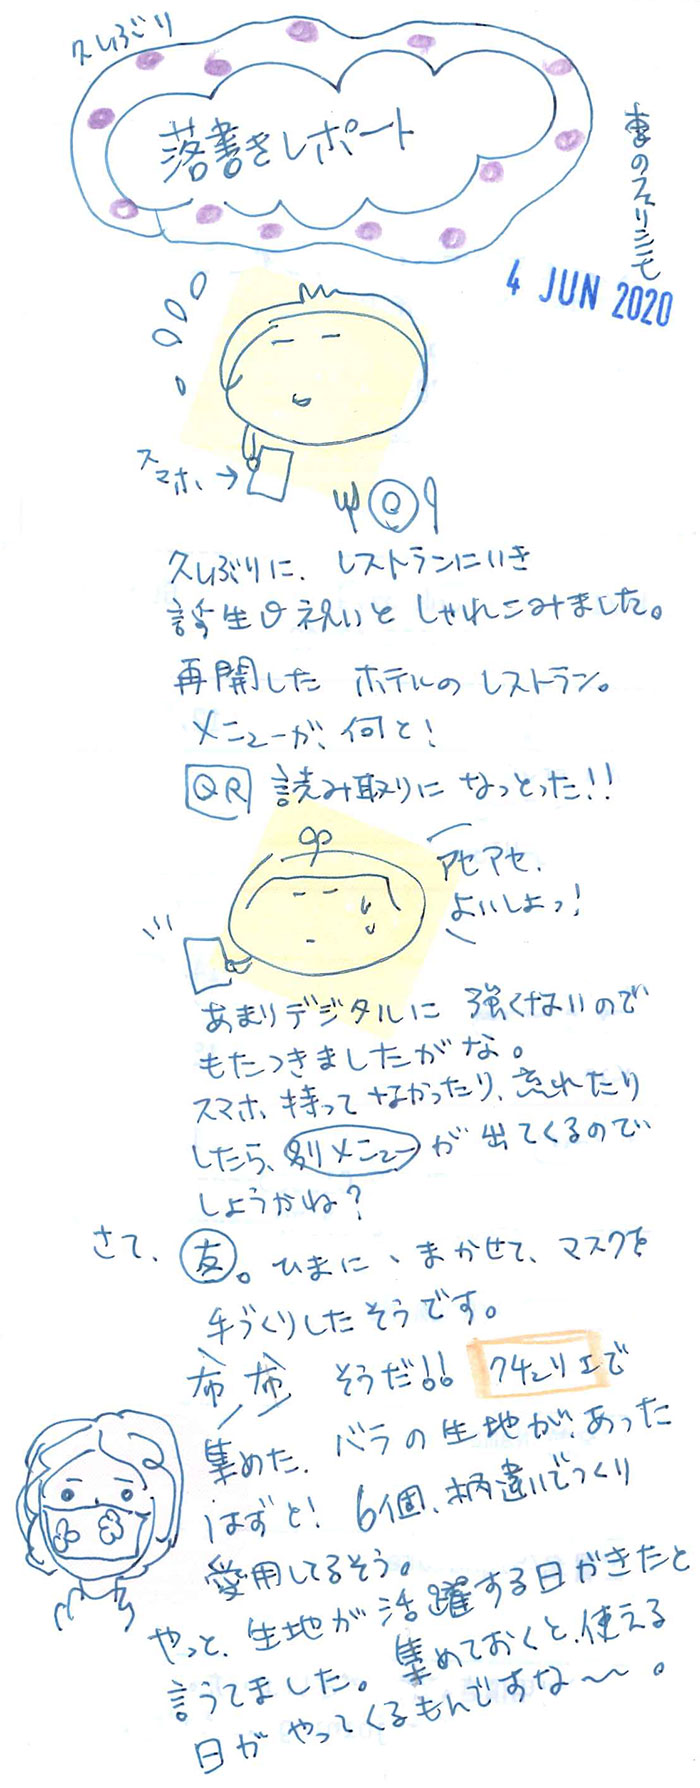 久しぶり
落書きレポート
妻のフェリシモ
4 JUN 2020
スマホ→
久しぶりに、レストランにいき
誕生日祝いと しゃれこみました。
再開した ホテルの レストラン。
メニューが、何と!
QR 読み取りに なっとった!!
アセアセ、
よいしょっ!
あまりデジタルに 強くないので
もたつきましたがな。
スマホ、持って なかったり、忘れたり
したら、別メニューが 出てくるので
しょうかね?
さて、友。ひまに、まかせて、マスクを
手づくりしたそうです。
布 布 そうだ!! クチュリエで
集めた、バラの生地が、あった
はずと! 6個、柄違いでつくり
愛用してるそう。
やっと、生地が活躍する日がきたと
言うてました。集めておくと、使える
日が やってくるもんですな〜。